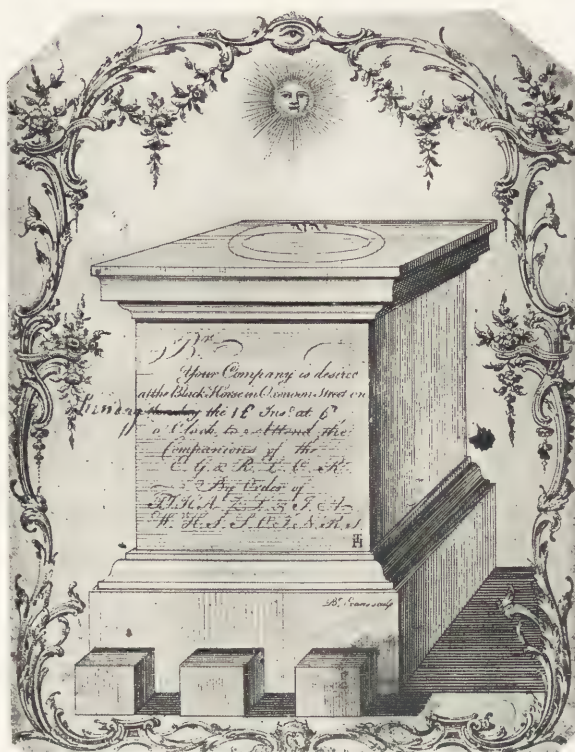 Br
Your Company is desire
at the Black Horse in Oxendon Street on
Sunday the 16 Inst at 6
o Clock to Attend the
Companions of the
C G & R L C R
By Order of
Br Evans sculp